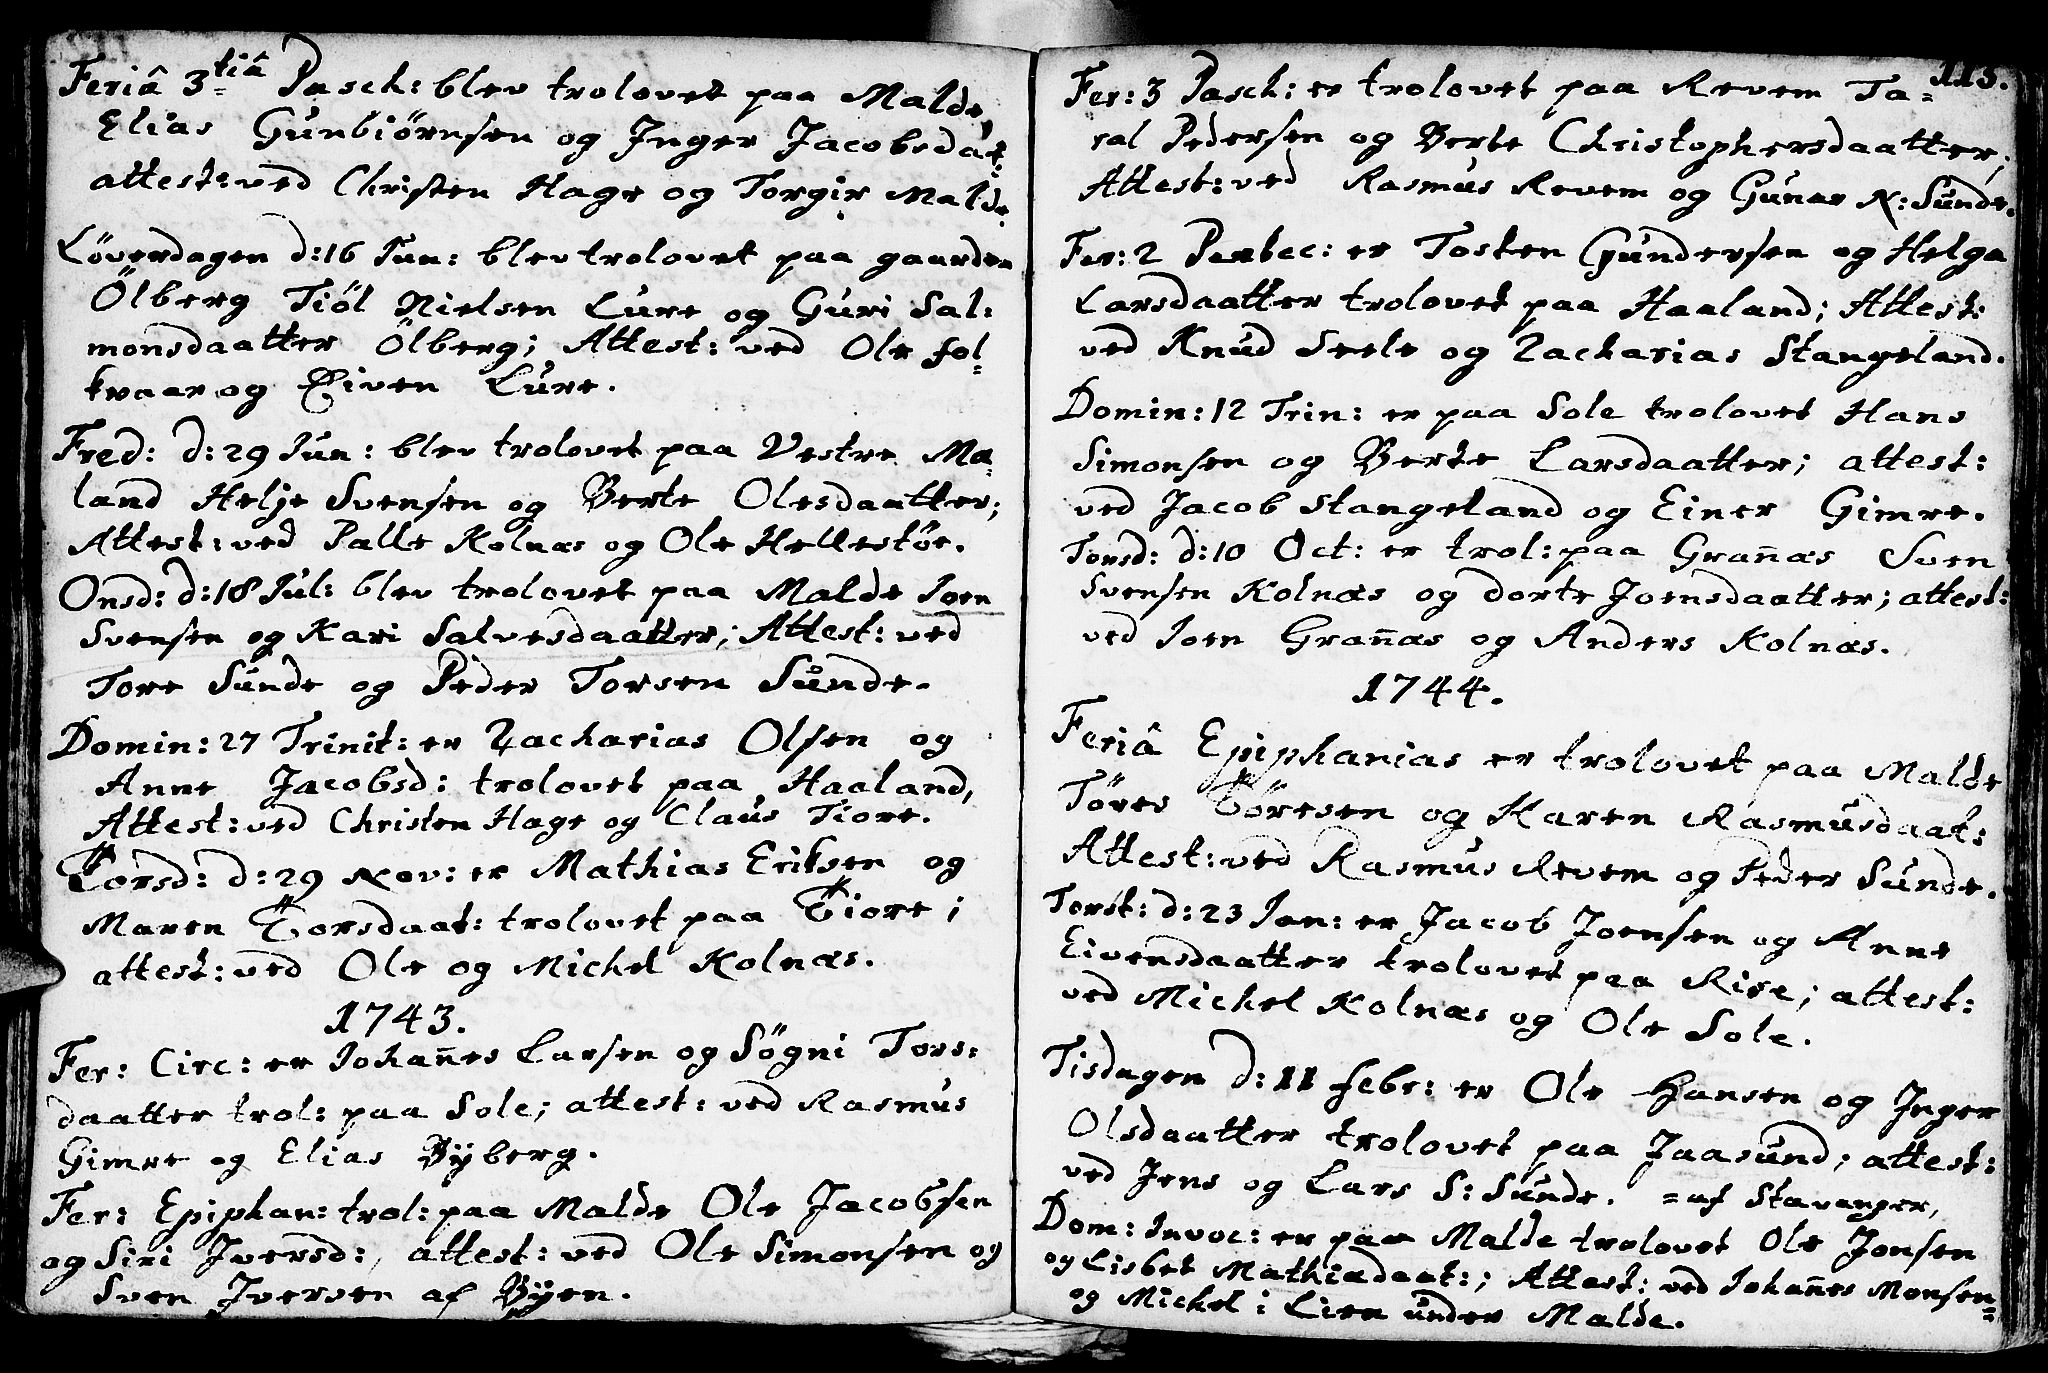 Feriâ 3tiâ Pasch: blev trolovet paa Malde,
Elias Gunbiørnsen og Inger Jacobsdat:
attest: ved Christen Hage og Torgir Malde.
Löverdagen d: 16 Jun: blev trolovet paa gaarden
Ölberg Tiöl Nielsen Lure og Guri Sal:
monsdaatter Ölberg; Attest: ved Ole Sol=
kvaar og Eiven Lure.
Fred: d: 29 Jun: blev trolovet paa Vestre Mæ=
land Helje Svensen og Berte Olesdaatter;
Attest: ved Palle Kolnæs og Ole Hellestöe.
Onsd: d: 18 Jul: blev trolovet paa Malde Joen
Svensen og Kari Salvesdaatter; Attest: ved
Tore Sunde og Peder Torsen Sunde.
Domin: 27 Trinit: er Zacharias Olsen og
Anne Jacobsd: trolovet paa Haaland,
Attest: ved Christen Hage og Claus Tiore.
Torsd: d: 29 Nov: er Mathias Eriksen og
Maren Torsdaat: trolovet paa Tiore;
attest: ved Ole og Michel Kolnæs.
1743.
Fer: Circ: er Johañes Larsen og Sögni Tors:
daatter trol: paa Sole; attest: ved Rasmus
Gimre og Elias Bÿberg.
Fer: Epiphan: trol: paa Malde Ole Jacobsen
og Siri Iversd:, attest: ved Ole Simonsen og
Sven Iversen af Bÿen.
113.
Fer: 3 Pasch: er trolovet paa Revem Ta=
ral Pedersen og Berte Christophersdaatter;
Attest: ved Rasmus Revem og Gunar N: Sunde.
Fer: 2 Pentec: er Tosten Gundersen og Helga
Larsdaatter trolovet paa Haaland; Attest:
ved Knud Seele og Zacharias Stangeland.
Domin: 12 Trin: er paa Sole trolovet Hans
Simonsen og Berte Larsdaatter; attest:
ved Jacob Stangeland og Einer Gimre.
Tonsd: d: 10 Oct: er trol: paa Grañæs Sven
Svensen Kolnæs og Dorte Joensdaatter; attest:
ved Joen Grañæs og Anders Kolnæs.
1744.
Feriâ Epiphanias er trolovet paa Malde
Töres Töresen og Karen Rasmusdaat:
Attest: ved Rasmus Revem og Peder Sunde.
Torst: d: 23 Jan: er Jacob Joensen og Anne
Eivensdaatter trolovet paa Rise; attest:
ved Michel Kolnæs og Ole Sole.
Tisdagen d: 11 Febr: er Ole Hansen og Inger
Olsdaatter trolovet paa Jaasund; attest:
ved Jens og Lars S: Sunde. =af Stavanger,
Dom: Invoc: er paa Malde trolovet Ole Jonsen
og Lisbet Mathiædaat:; Attest: ved Johañes Monsen=
og Michel i Lien under Malde.